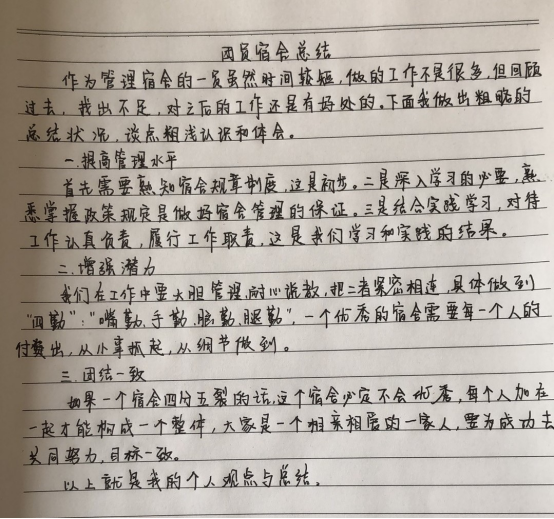 团员宿舍总结
作为管理宿舍的一员虽然时间较短,做的工作不是很多,但回顾
过去,找出不足,对之后的工作还是有好处的。下面我做出粗略的
总结状况,谈点粗浅认识和体会。
一.提高管理水平
首先需要熟知宿舍规章制度,这是初步。二是深入学习的必要,熟
悉掌握政策规定是做好宿舍管理的保证。三是结合实践学习,对待
工作认真负责,履行工作职责,这是我们学习和实践的结果。
二.增强潜力
我们在工作中要大胆管理,耐心说教,把二者紧密相连,具体做到
“四勤”:“嘴勤,手勤,眼勤,腿勤”,一个优秀的宿舍需要每一个人的
付费出,从小事抓起,从细节做到。
三.团结一致
如果一个宿舍四分五裂的话,这个宿舍必定不会优秀,每个人加在
一起才能构成一个整体,大家是一个相亲相爱的一家人,要为成功去
共同努力,目标一致。
以上就是我的个人观点与总结.